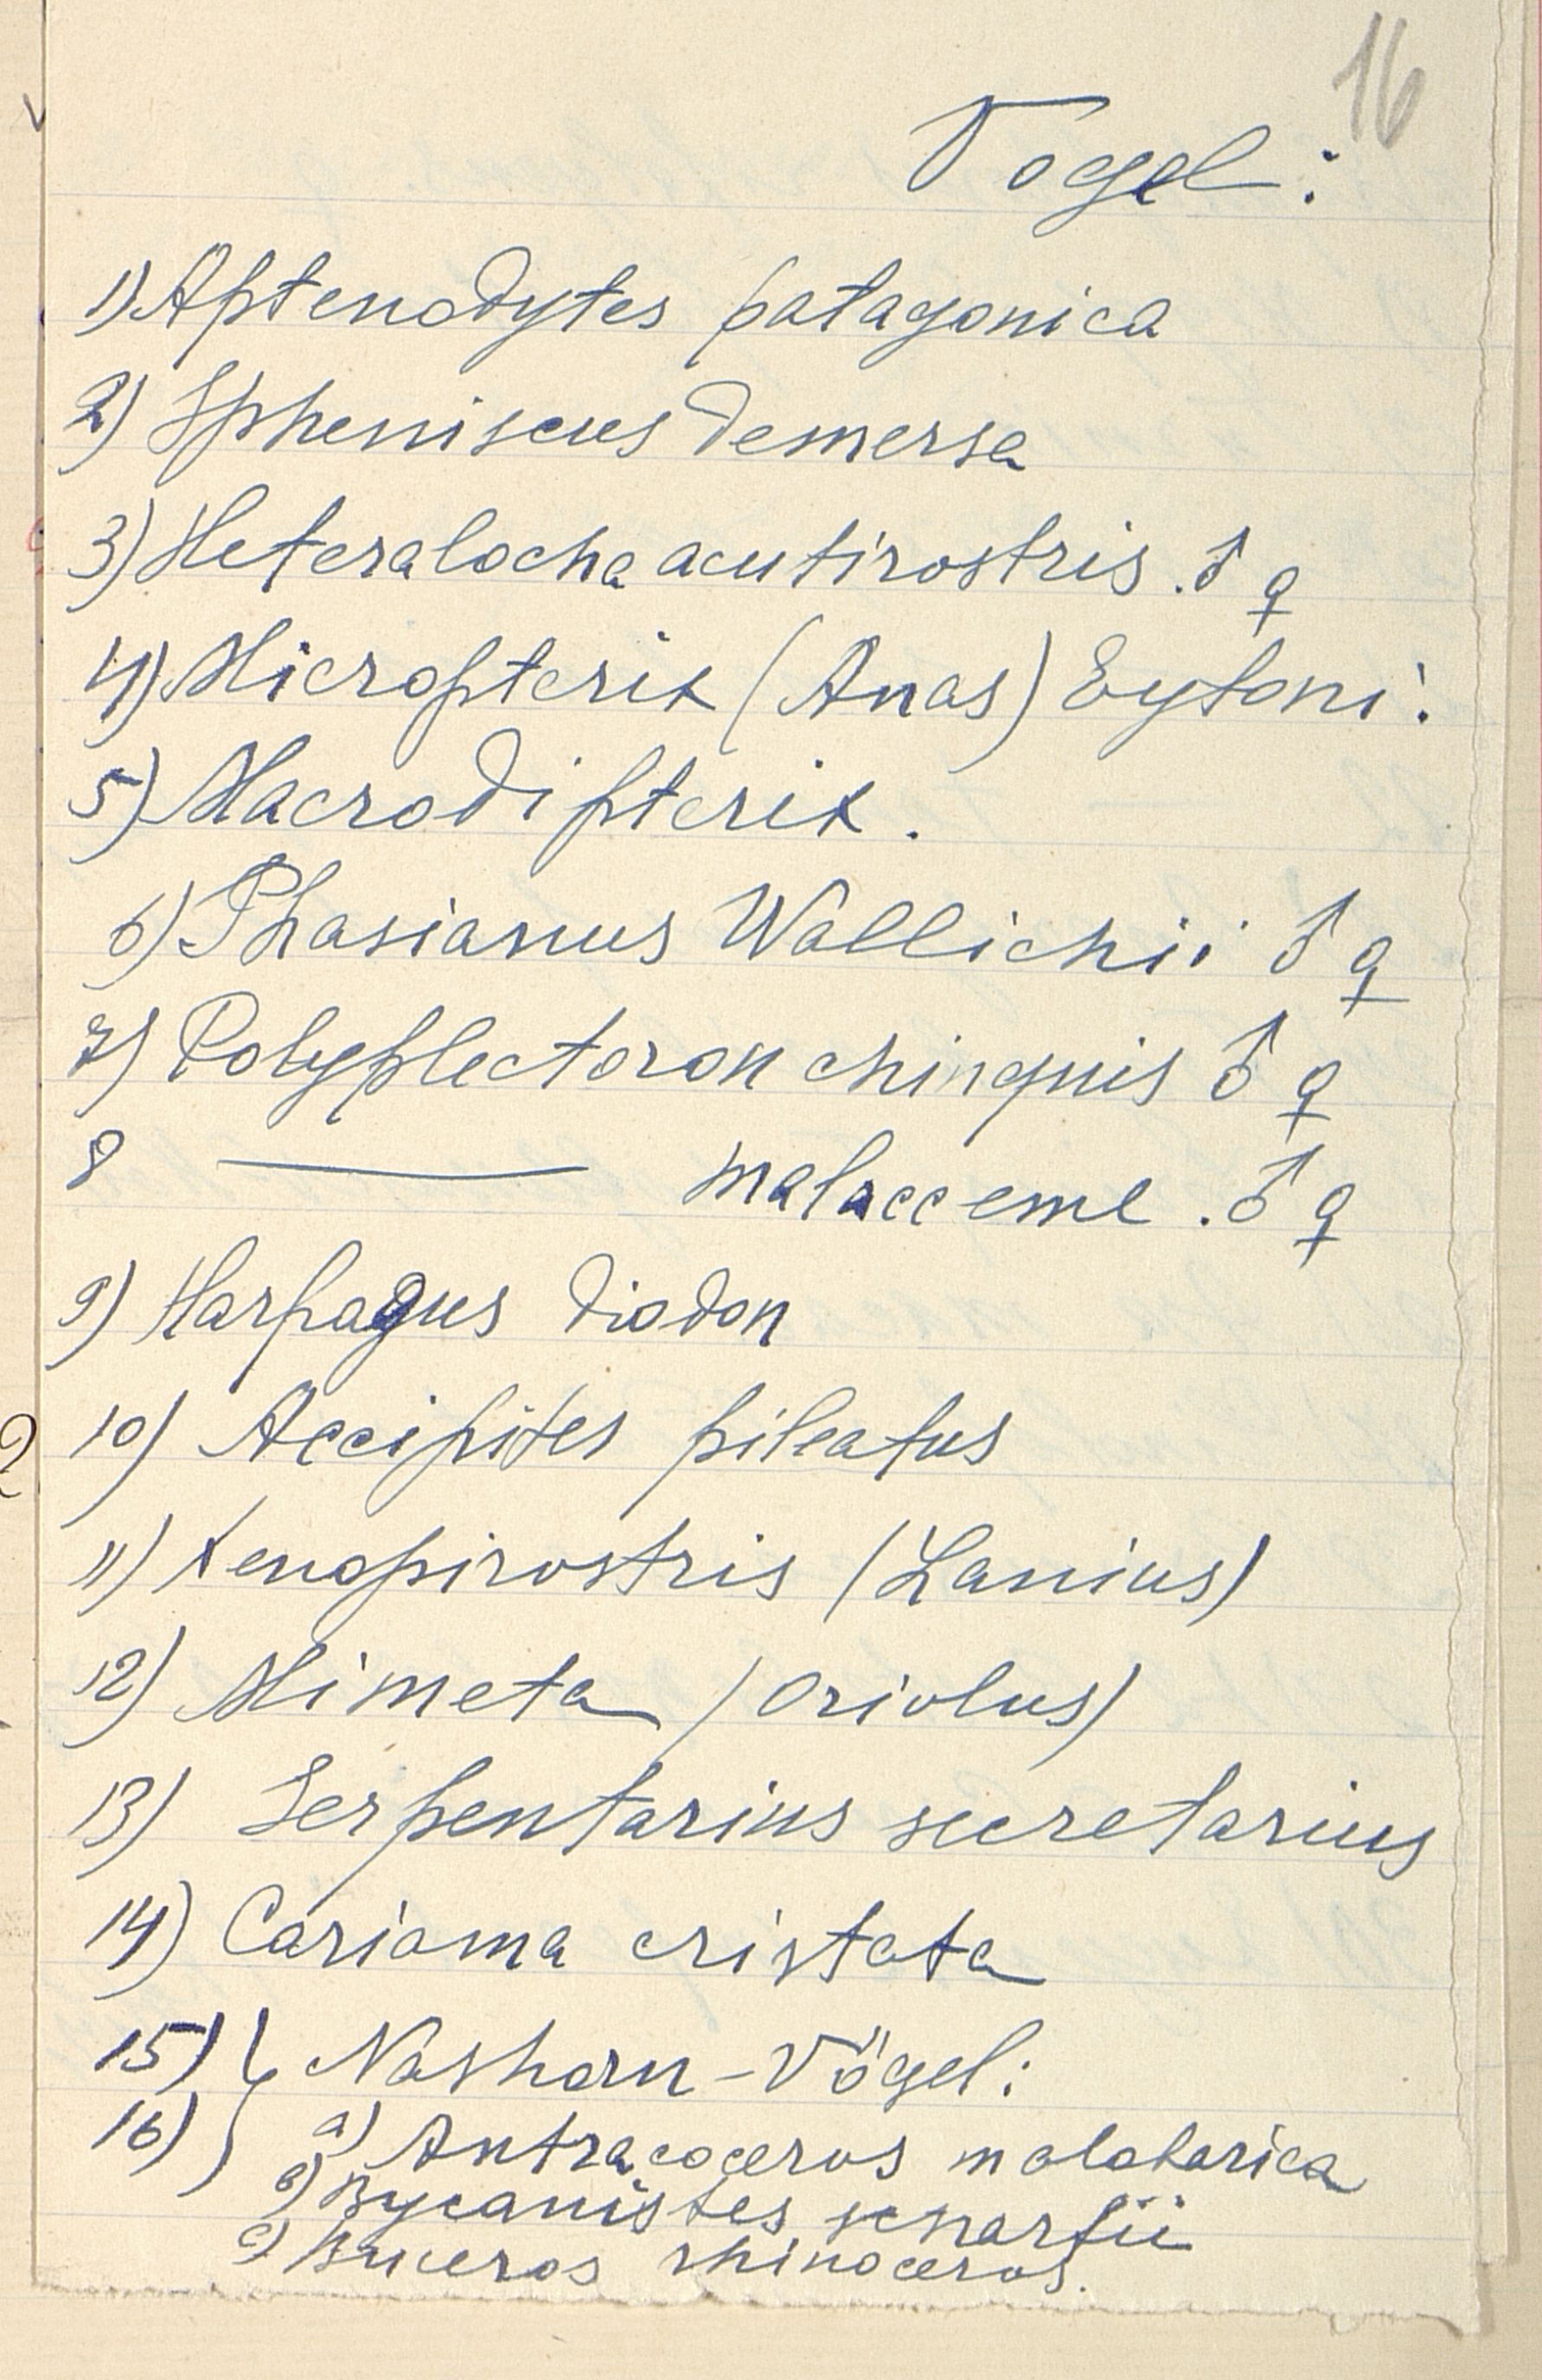 16
Vogel:
1) Aptenodytes patagonica
2) Spheniscus demersa
3) Heteralocha acutirostris. ♂ ♀
4) Micropterix (Anas) Eytoni.
5) Macrodipterix.
6) Phasianus Wallichii ♂ ♀
7) Polyplectoron chinquis ♂ ♀
8 —— malacceme. ♂ ♀
9) Harpagus diodon
10) Accipiter pileatus
11) Xenopirostris (Lanius)
12) Mimeta (Oriolus)
13) Serpentarius secretarius
14) Cariama cristata
15) } Nashorn-Vögel:
16) } a) Antracoceros malabarica
b) Bycanistes
c) Buceros rhinoceros.